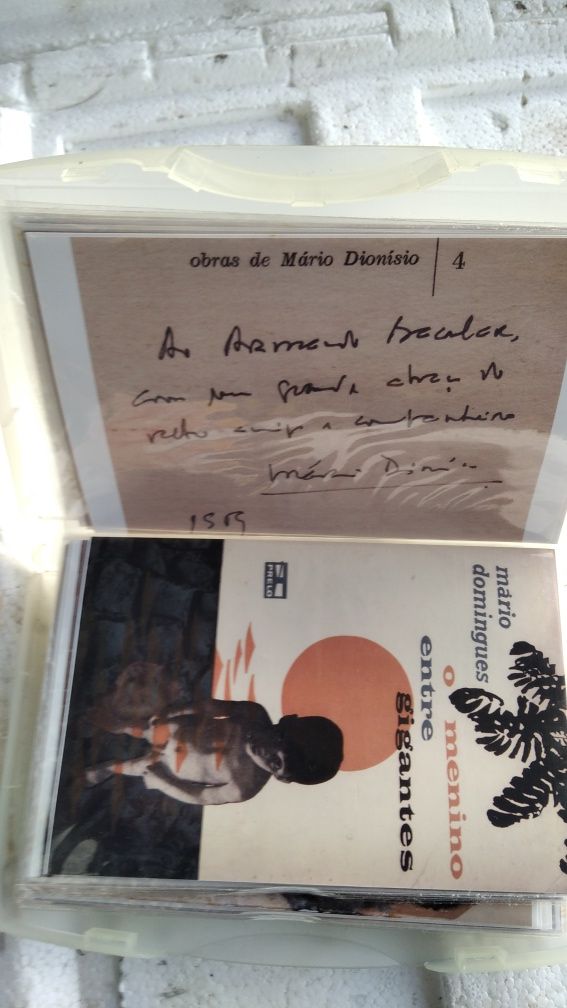 obras de Mário Dionísio
4
Ao Armando Bacelar,
com um grande abraço do
velho amigo e companheiro
Mário Dionísio
PRELO
mário
domingues
o menino
entre
gigantes